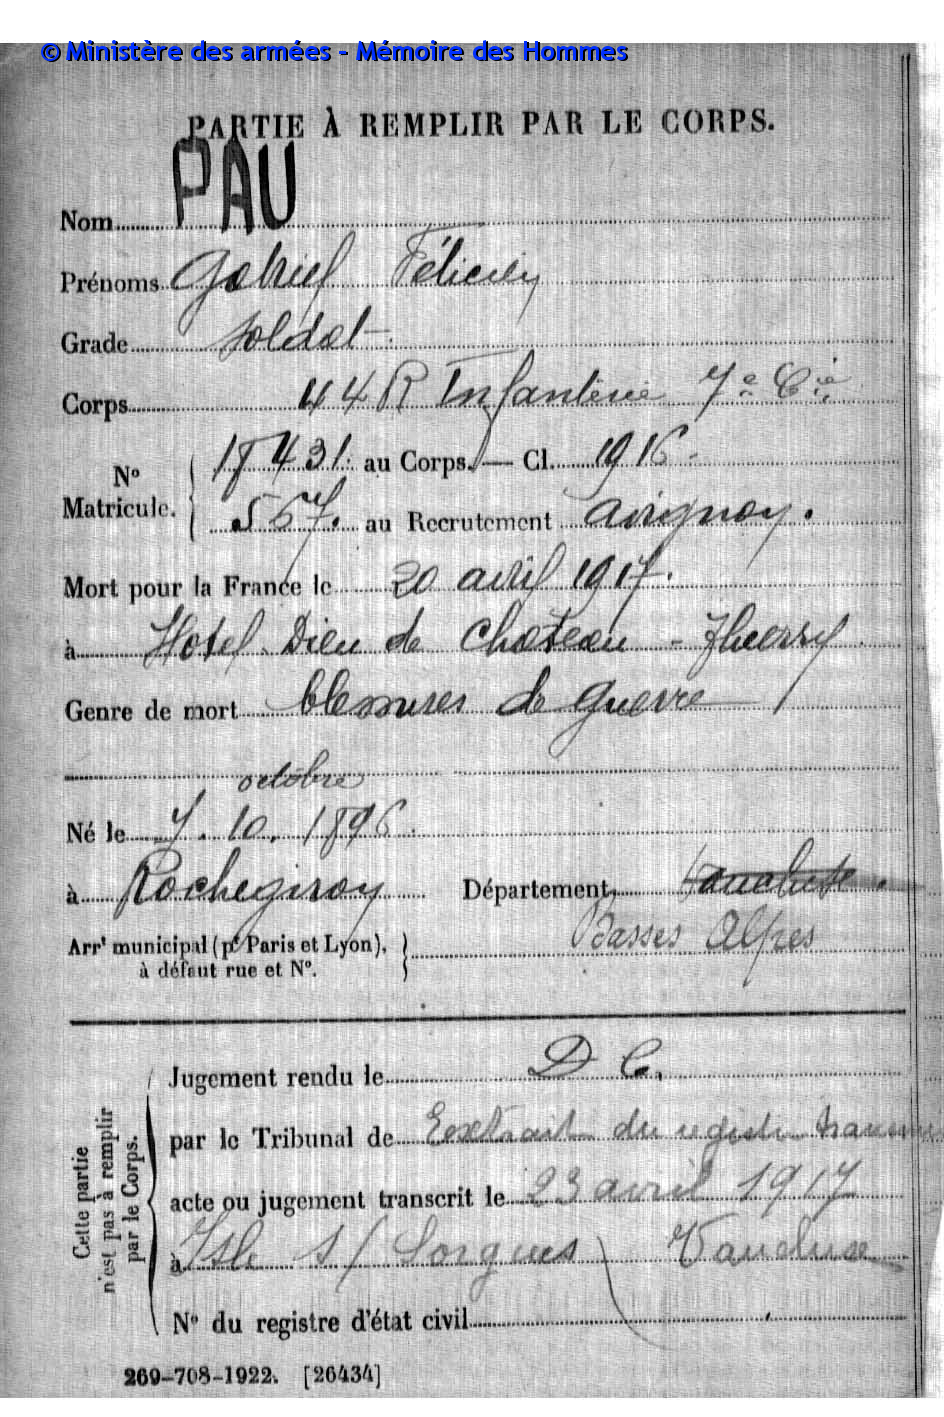 © Ministère des armées - Mémoire des Hommes
PARTIE À REMPLIR PAR LE CORPS.
Nom PAU
Prénoms Gabriel Félicien
Grade Soldat
Corps 44 R Infanterie 7e Cie
No Matricule. 18431 au Corps. — Cl. 1916
567. au Recrutement Avignon.
Mort pour la France le 20 avril 1917.
à Hotel Dieu de Chateau - Thierry
Genre de mort blessures de guerre
octobre
Né le 7. 10. 1896
à Rochegiron Département Vaucluse.
Basses Alpes
Arrt municipal (pr Paris et Lyon),
à défaut rue et N°.
Cette partie n'est pas à remplir par le Corps.
Jugement rendu le D C.
par le Tribunal de Extrait du registre
acte ou jugement transcrit le 23 avril 1917
à Isle s/ Sorgues Vaucluse
N° du registre d'état civil
269-708-1922. [26434]